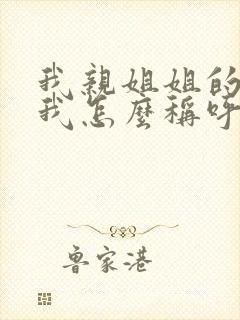 我親姐姐的
我怎麼稱呼
魯家港